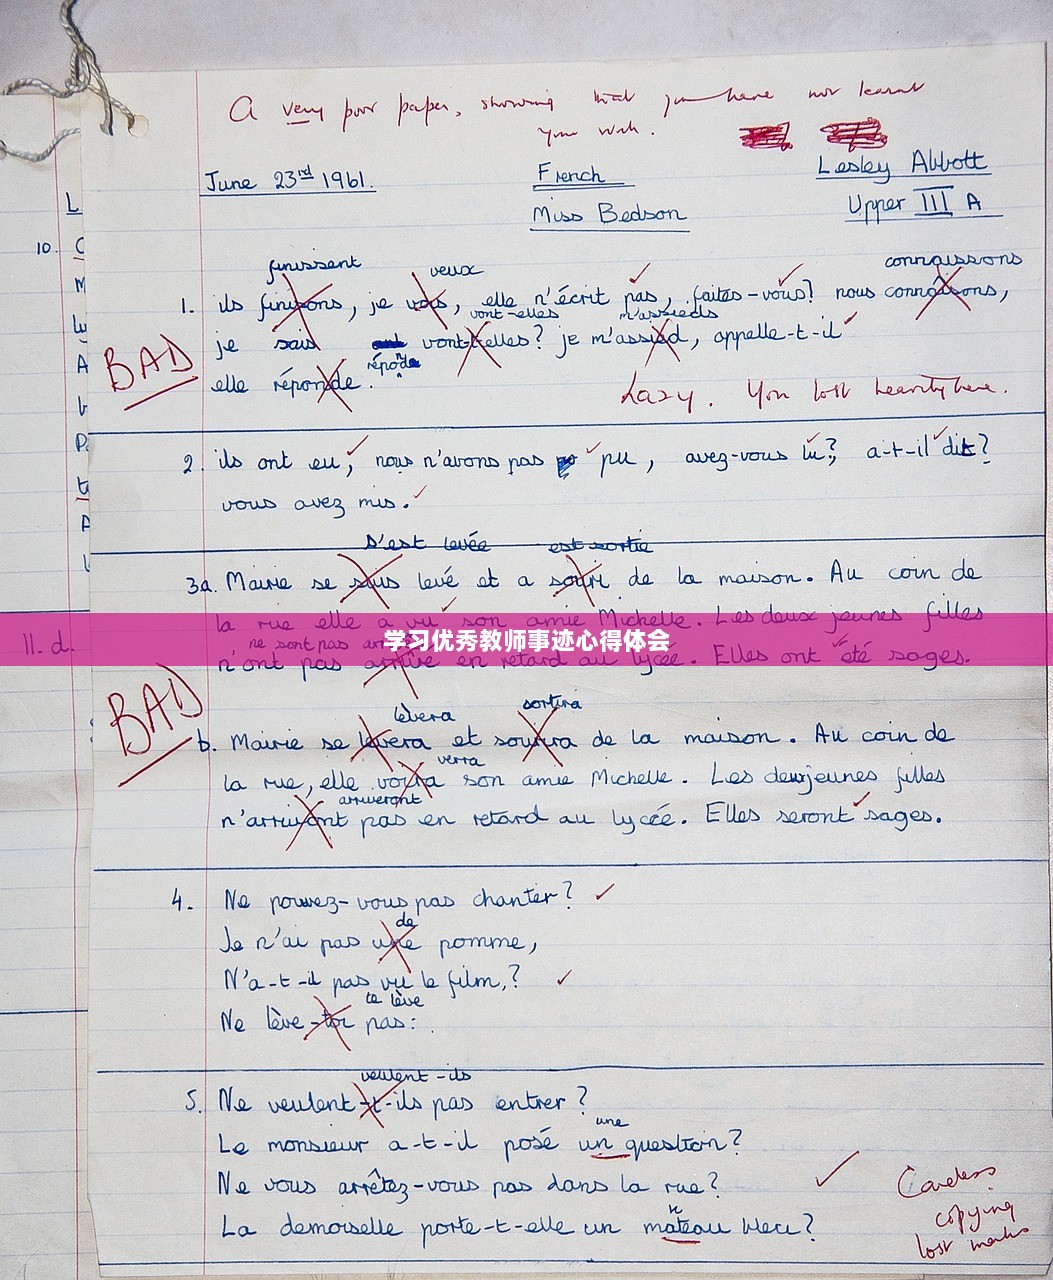 A very poor paper, showing that you have not learnt
your work.
June 23rd 1961. French Lesley Abbott
Miss Bedson Upper III A
L
10. C
M
A
finissent veux connaissons
1. ils finisons, je vois, elle n'écrit pas, faites-vous? nous connaisons,
vont-elles m'assieds
je sais vont-t-elles? je m'assied, appelle-t-il
BAD
réponde
elle réponde.
Lazy. You lost heavily here.
2. ils ont eu, nous n'avons pas pu, avez-vous lu?, a-t-il dit?
vous avez mis.
s'est levée est sortie
3a. Mairie se levé et a de la maison. Au coin de
la rue elle a vu son amie Michelle. Les deux jeunes filles
ne sont pas
11. d.
学习优秀教师事迹心得体会
n'ont pas arrivé en retard au lycée. Elles ont été sages.
BAD
lèvera sortira
b. Mairie se levera et de la maison. Au coin de
verra
la rue, elle voira son amie Michelle. Les deuxjeunes filles
arriveront
n'arrivont pas en retard au lycée. Elles seront sages.
4. Ne pouvez-vous pas chanter?
de
Je n'ai pas une pomme,
N'a-t-il pas vu le film,?
te lève
Ne lève-toi pas:
veulent-ils
5. Ne veulent-t-ils pas entrer?
une
Le monsieur a-t-il posé un question?
Ne vous arrêtez-vous pas dans la rue?
n
La demoiselle porte-t-elle un mateau bleu?
Careless
copying
lost marks